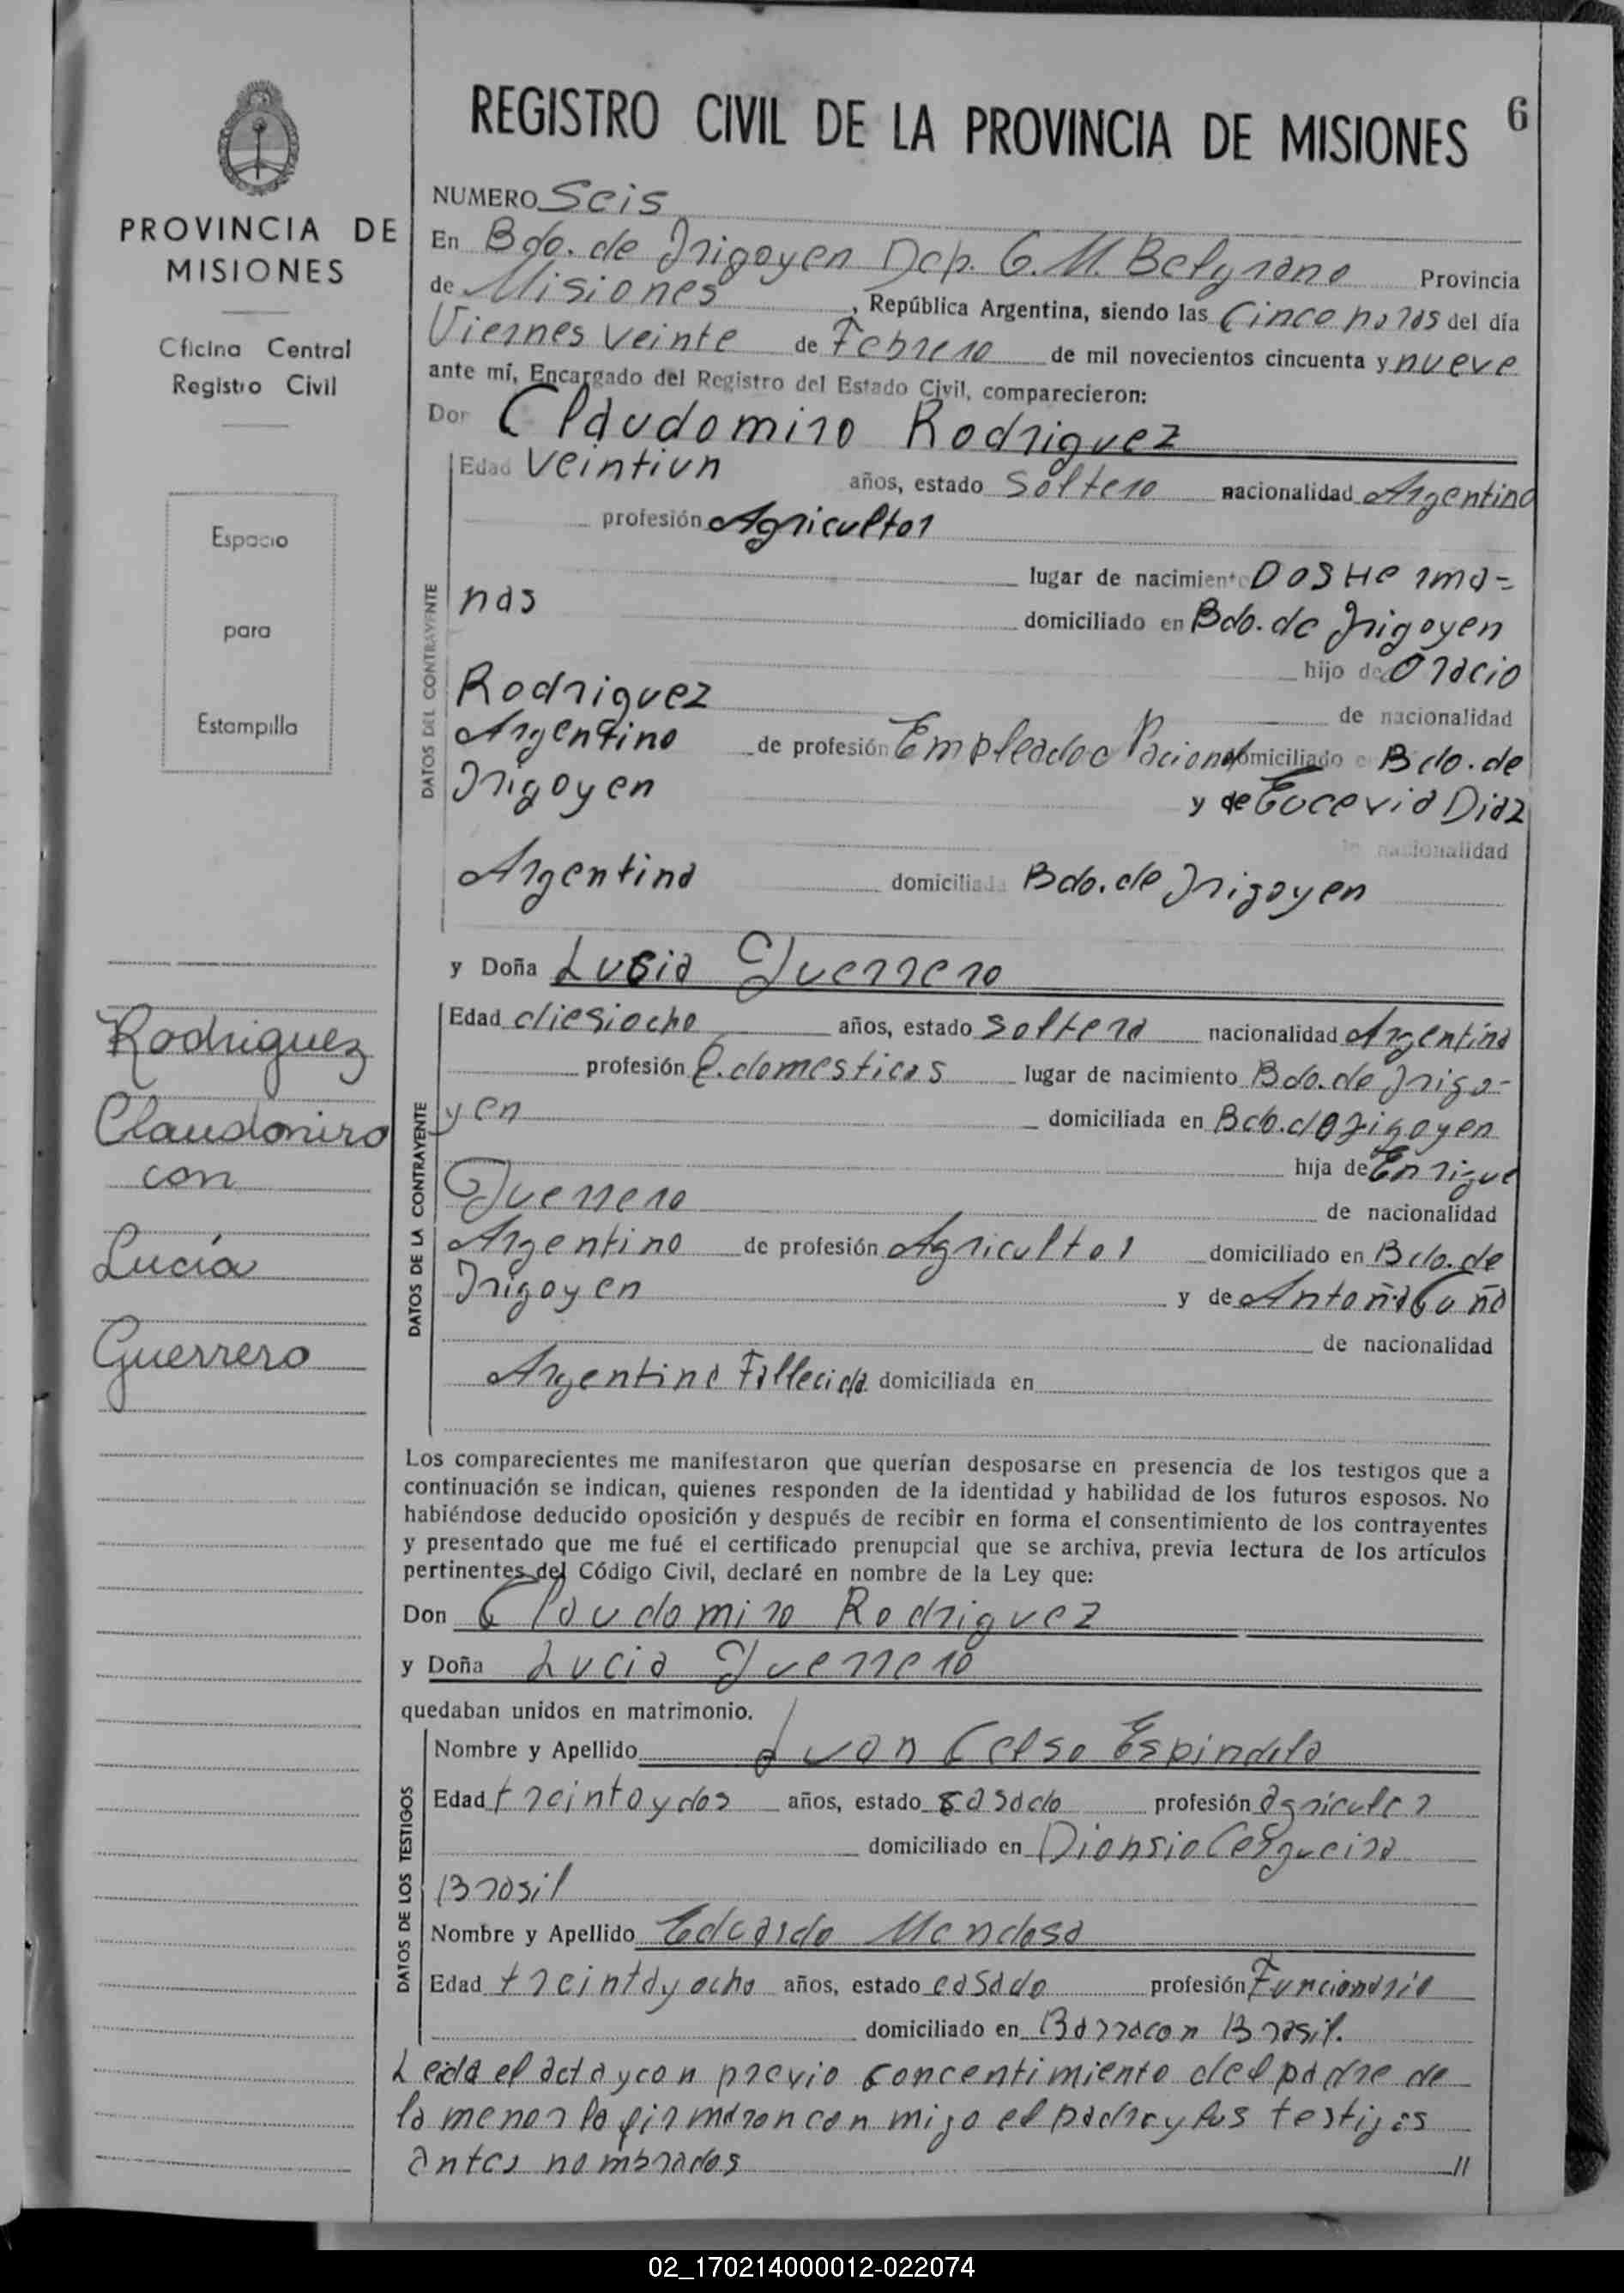 REGISTRO CIVIL DE LA PROVINCIA DE MISIONES 6
PROVINCIA DE
MISIONES
Oficina Central
Registro Civil
Espacio
para
Estampilla
Rodriguez
Claudomiro
con
Lucía
Guerrero
NUMERO Seis
En Bdo. de Irigoyen Dep. G. M. Belgrano Provincia
de Misiones, República Argentina, siendo las Cinco horas del día
Viernes veinte de Febrero de mil novecientos cincuenta y nueve
ante mí, Encargado del Registro del Estado Civil, comparecieron:
Don Claudomiro Rodriguez
DATOS DEL CONTRAYENTE
Edad Veintiun años, estado Soltero nacionalidad Argentino
profesión Agricultor
lugar de nacimiento Dos Herma=
nas domiciliado en Bdo. de Irigoyen
hijo de Oracio
Rodriguez de nacionalidad
Argentino de profesión Empleado Nacional domiciliado en Bdo. de
Irigoyen y de Diaz
de nacionalidad
Argentina domiciliada Bdo. de Irigoyen
y Doña Lucia Guerrero
DATOS DE LA CONTRAYENTE
Edad diesiocho años, estado Soltera nacionalidad Argentina
profesión Q. domesticos lugar de nacimiento Bdo. de Irigo-
yen domiciliada en Bdo. de Irigoyen
hija de Enrique
Guerrero de nacionalidad
Argentino de profesión Agricultor domiciliado en Bdo. de
Irigoyen y de Antoña Cuña
de nacionalidad
Argentina Fallecida domiciliada en
Los comparecientes me manifestaron que querían desposarse en presencia de los testigos que a
continuación se indican, quienes responden de la identidad y habilidad de los futuros esposos. No
habiéndose deducido oposición y después de recibir en forma el consentimiento de los contrayentes
y presentado que me fué el certificado prenupcial que se archiva, previa lectura de los artículos
pertinentes del Código Civil, declaré en nombre de la Ley que:
Don Claudomiro Rodriguez
y Doña Lucia Guerrero
quedaban unidos en matrimonio.
DATOS DE LOS TESTIGOS
Nombre y Apellido Juan Celso Espindola
Edad treinta y dos años, estado casado profesión agricultor
domiciliado en Dionsio Cerqueira
Brasil
Nombre y Apellido Eduardo Mendosa
Edad treinta y ocho años, estado casado profesión Funcionario
domiciliado en Barracon Brasil.
Leida el acta y con previo concentimiento del padre de
la menor la firmaron con migo el padre y los testigos
antes nombrados //
02_170214000012-022074